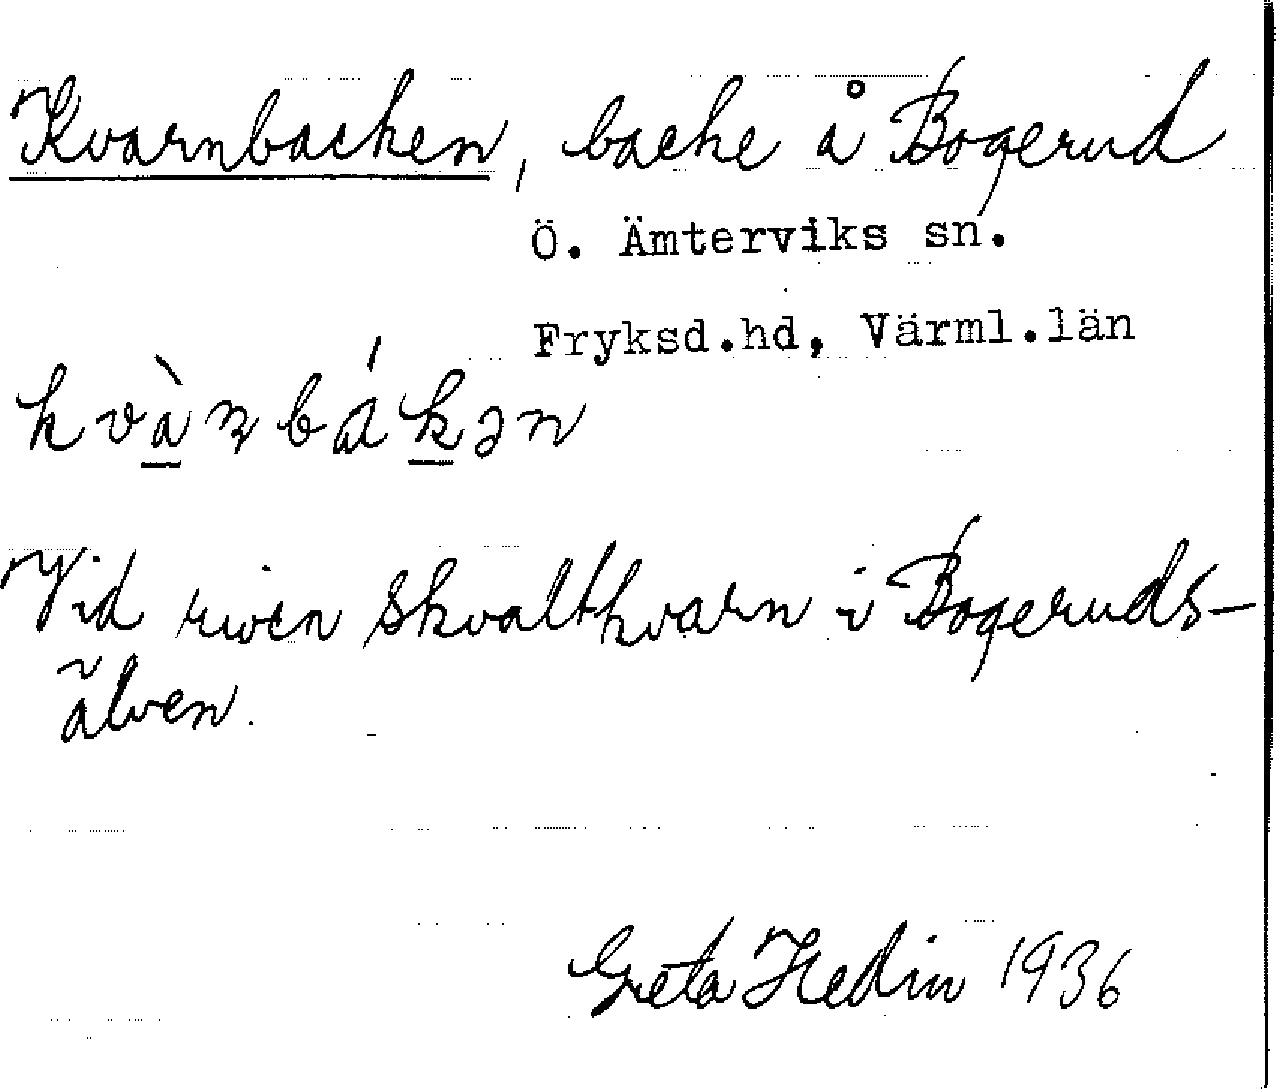 Kvarnbacken, backe å Bogerud
Ö. Ämterviks sn.
Fryksd.hd, Värml.län
kvànbákən
Vid riven skvaltkvarn i Bogeruds-
älven.
Greta Hedin 1936